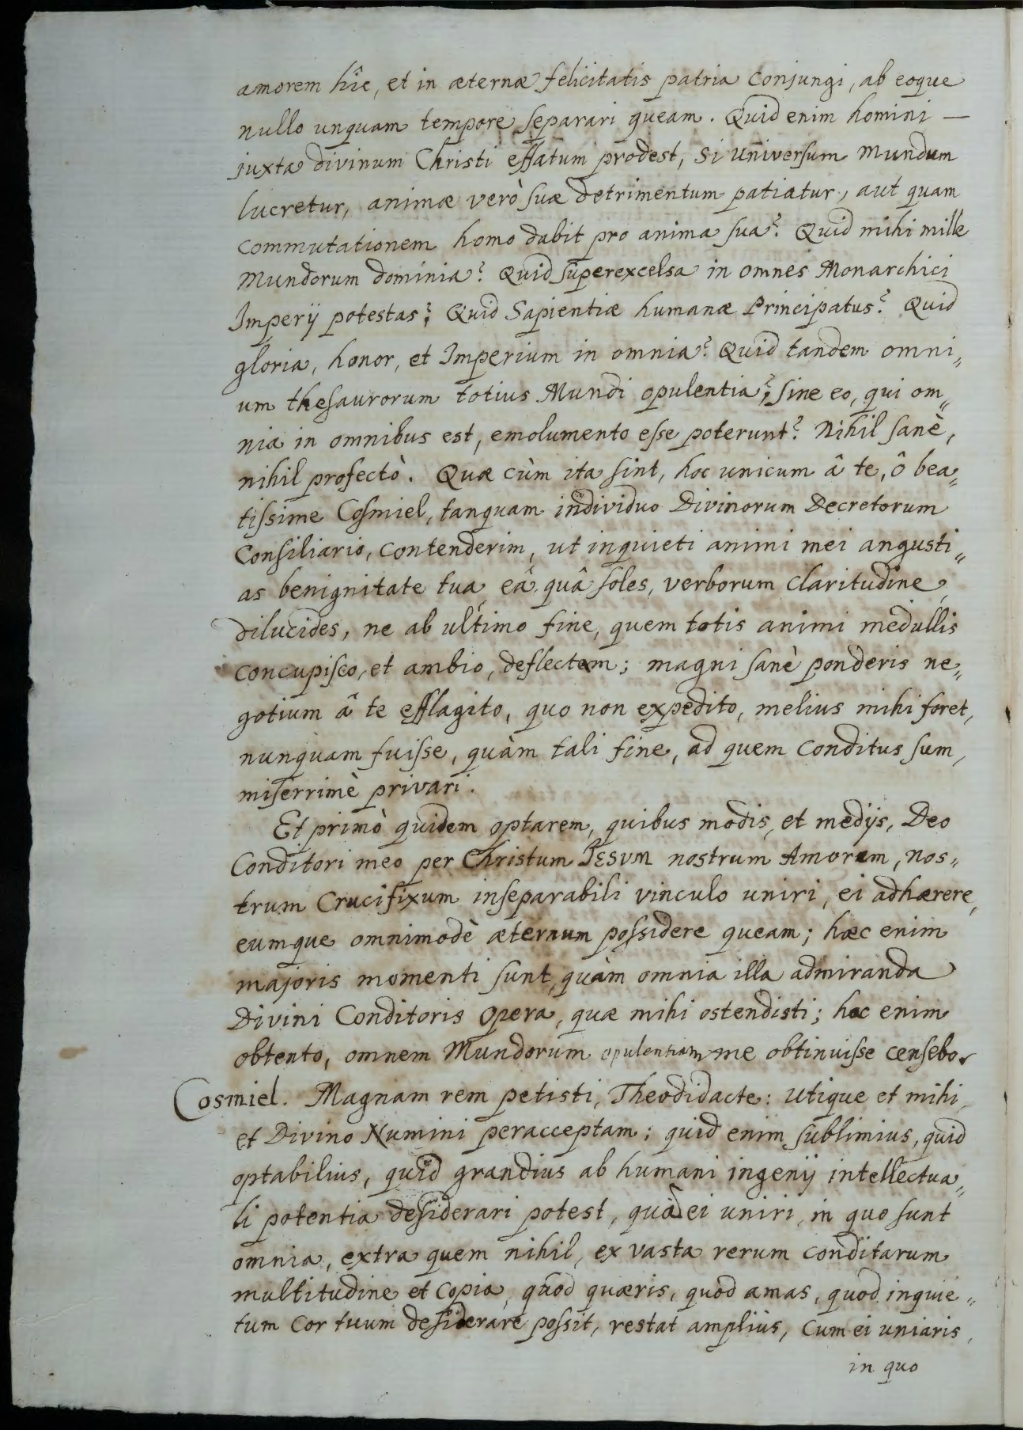 amorem hîc, et in æternæ felicitatis patria conjungi, ab eoque
nullo unquam tempore separari queam. Quid enim homini —
juxta divinum Christi effatum prodest, si universum Mundum
lucretur, animæ verò suæ detrimentum patiatur, aut quam
commutationem homo dabit pro anima sua? Quid mihi mille
Mundorum dominia? Quid superexcelsa in omnes Monarchici
Imperij potestas; Quid Sapientiæ humanæ Principatus? Quid
gloria, honor, et Imperium in omnia? Quid tandem omni„
um thesaurorum totius Mundi opulentia; sine eo, qui om„
nia in omnibus est, emolumento esse poterunt? Nihil sanè,
nihil profectò. Quæ cùm ita sint, hoc unicum â te, ô bea„
tissime Cosmiel, tanquam individuo Divinorum Decretorum
Consiliario, contenderim, ut inquieti animi mei angusti„
as benignitate tua, eâ quâ soles, verborum claritudine,
dilucides, ne ab ultimo fine, quem totis animi medullis
concupisco, et ambio, deflectam; magni sanè ponderis ne„
gotium â te efflagito, quo non expedito, melius mihi foret,
nunquam fuisse, quàm tali fine, ad quem conditus sum,
miserrimè privari.
Et primò quidem optarem, quibus modis, et medijs, Deo
Conditori meo per Christum JESUM nostrum Amorem, nos„
trum Crucifixum inseparabili vinculo uniri, ei adhærere,
eumque omnimodè æternum possidere queam; hæc enim
majoris momenti sunt, quàm omnia illa admiranda
Divini Conditoris Opera, quæ mihi ostendisti; hoc enim
obtento, omnem Mundorum opulentiam me obtinuisse censebo.
Cosmiel. Magnam rem petisti, Theodidacte: Utique et mihi,
et Divino Numini peracceptam; quid enim sublimius, quid
optabilius, quid grandius ab humani ingenij intellectua„
li potentia desiderari potest, quàm ei uniri, in quo sunt
omnia, extra quem nihil, ex vasta rerum conditarum
multitudine et copia, quod quæris, quod amas, quod inquie„
tum cor tuum desiderare possit, restat amplius, cum ei uniaris,
in quo